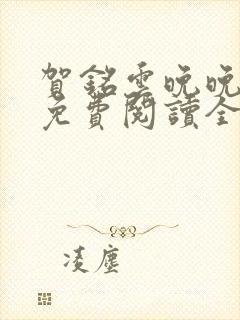 賀銘雲晚晚
免費閱讀全
凌塵